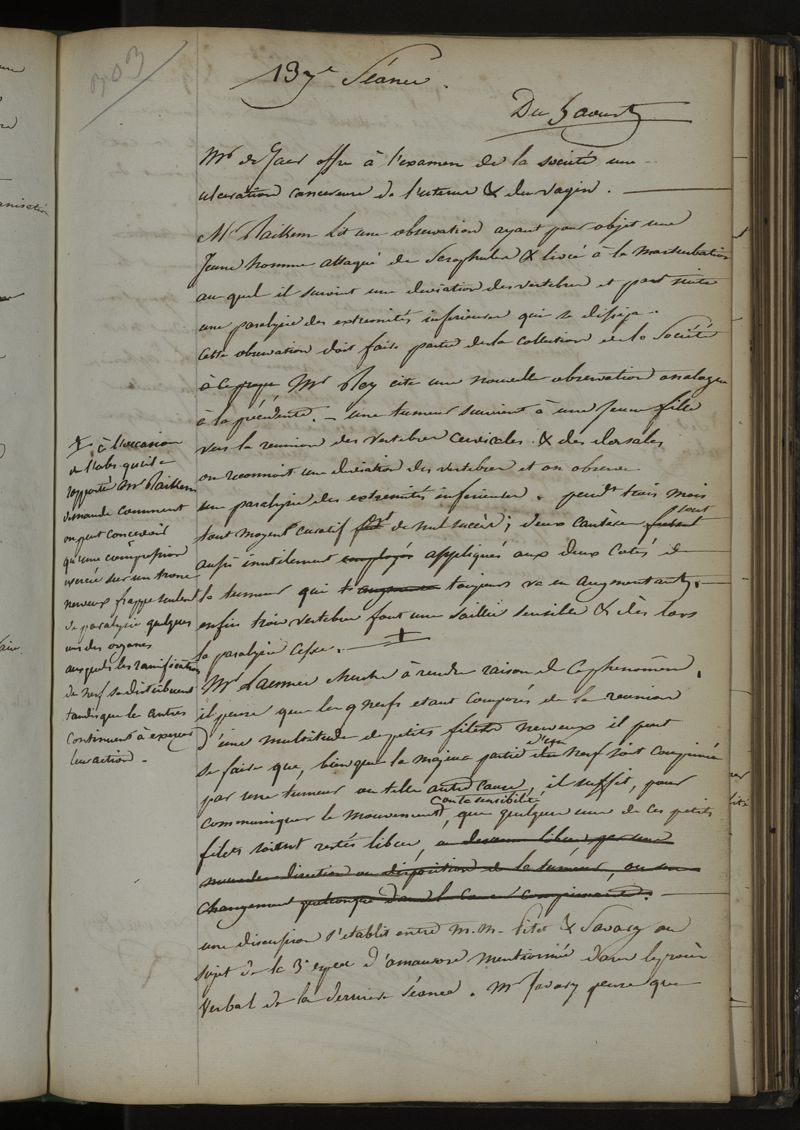 303
137e Séance.
Du 5 aoust
Mr de Gaer offre à l'examen de la société une
ulceration cancereuse de l'uterus & du vagin.
Mr Raikem lit une observation ayant pour objet une
Jeune homme attaqué de Scrophules & livré à la masturbation
au quel il survint une deviation des vertebres et part suite
une paralysie des extremités inferieures qui se dissipa.
Cette observation doit faire partie de la collection de la Société
à ce propos Mr Rey cite une nouvelle observation analogue
à la précédente. – une tumeur survient à une jeune fille
vers la reunion des vertebres cervicales & des dorsales
on reconnoit une deviation des vertebres et on observe
une paralysie des extremités inferieures. pendt trois mois
tout moyent curatif de nul succès; deux cautères sont
aussi inutilement employés appliqués aux deux cotés de
la tumeur qui toujours va en augmentant.
enfin trois vertebres font une saillie sensible & dès lors
la paralysie cesse. ‡
Mr Laennec cherche à rendre raison de ce phenomène,
il pense que les nerfs etant composés de la reunion
d'une multitude de petits filets nerveux il peut
se faire que, bien que la majeure partie d'un nerf soit comprimée
par une tumeur ou telle autre cause, il suffit, pour
communiquer le mouvement ou la sensibilité, que quelques uns de ces petits
filets soient restés libres, ou devenus libres par une
nouvelle direction ou disposition de la tumeur, ou un
changement quelconque dans le corps comprimant.
une discussion s'etablit entre m.m. & Savary au
sujet de la 3e espece d'amaurose mentionnée dans le procès
verbal de la derniere séance. Mr Savary pense que
‡ à l'occasion
de l'obs. qui est
rapportée Mr Raikem
demande comment
on peut concevoir
qu'une compression
exercée sur un tronc
nerveux frappe seulent
de paralysie quelques
uns des organes
auxquels les ramifications
du nerf se distribuent
tandis que les autres
continuent à exercer
leur action.